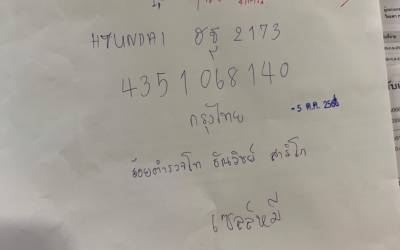 HYUNDAI ฮฐ 2173
4351068140
กรุงไทย
- 5 ต.ค. 256
ร้อยตำรวจโท ธันวิชย์ สาริโก
เซลล์หมี